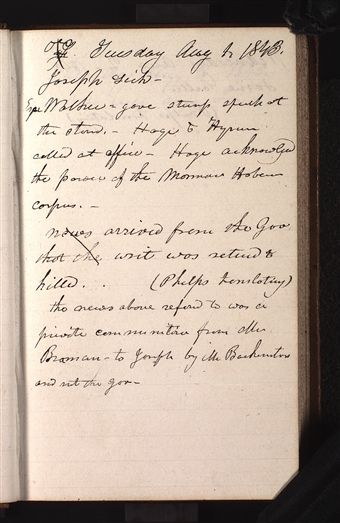 Tuesday Aug 1, 1843.
Joseph sick-
Esqr Walker - gave stump speech at
the stand. - Hoge & Hyrum
called at office - Hoge acknowled
the power of the Mormon Habeus
corpus. -
news arrived from the Gov.
that the writ was returnd &
killed. . . (Phelps translating)
the news above referd to was a
private communication from Mr.
- to Joseph by Mr Backenstos
and not the gov-